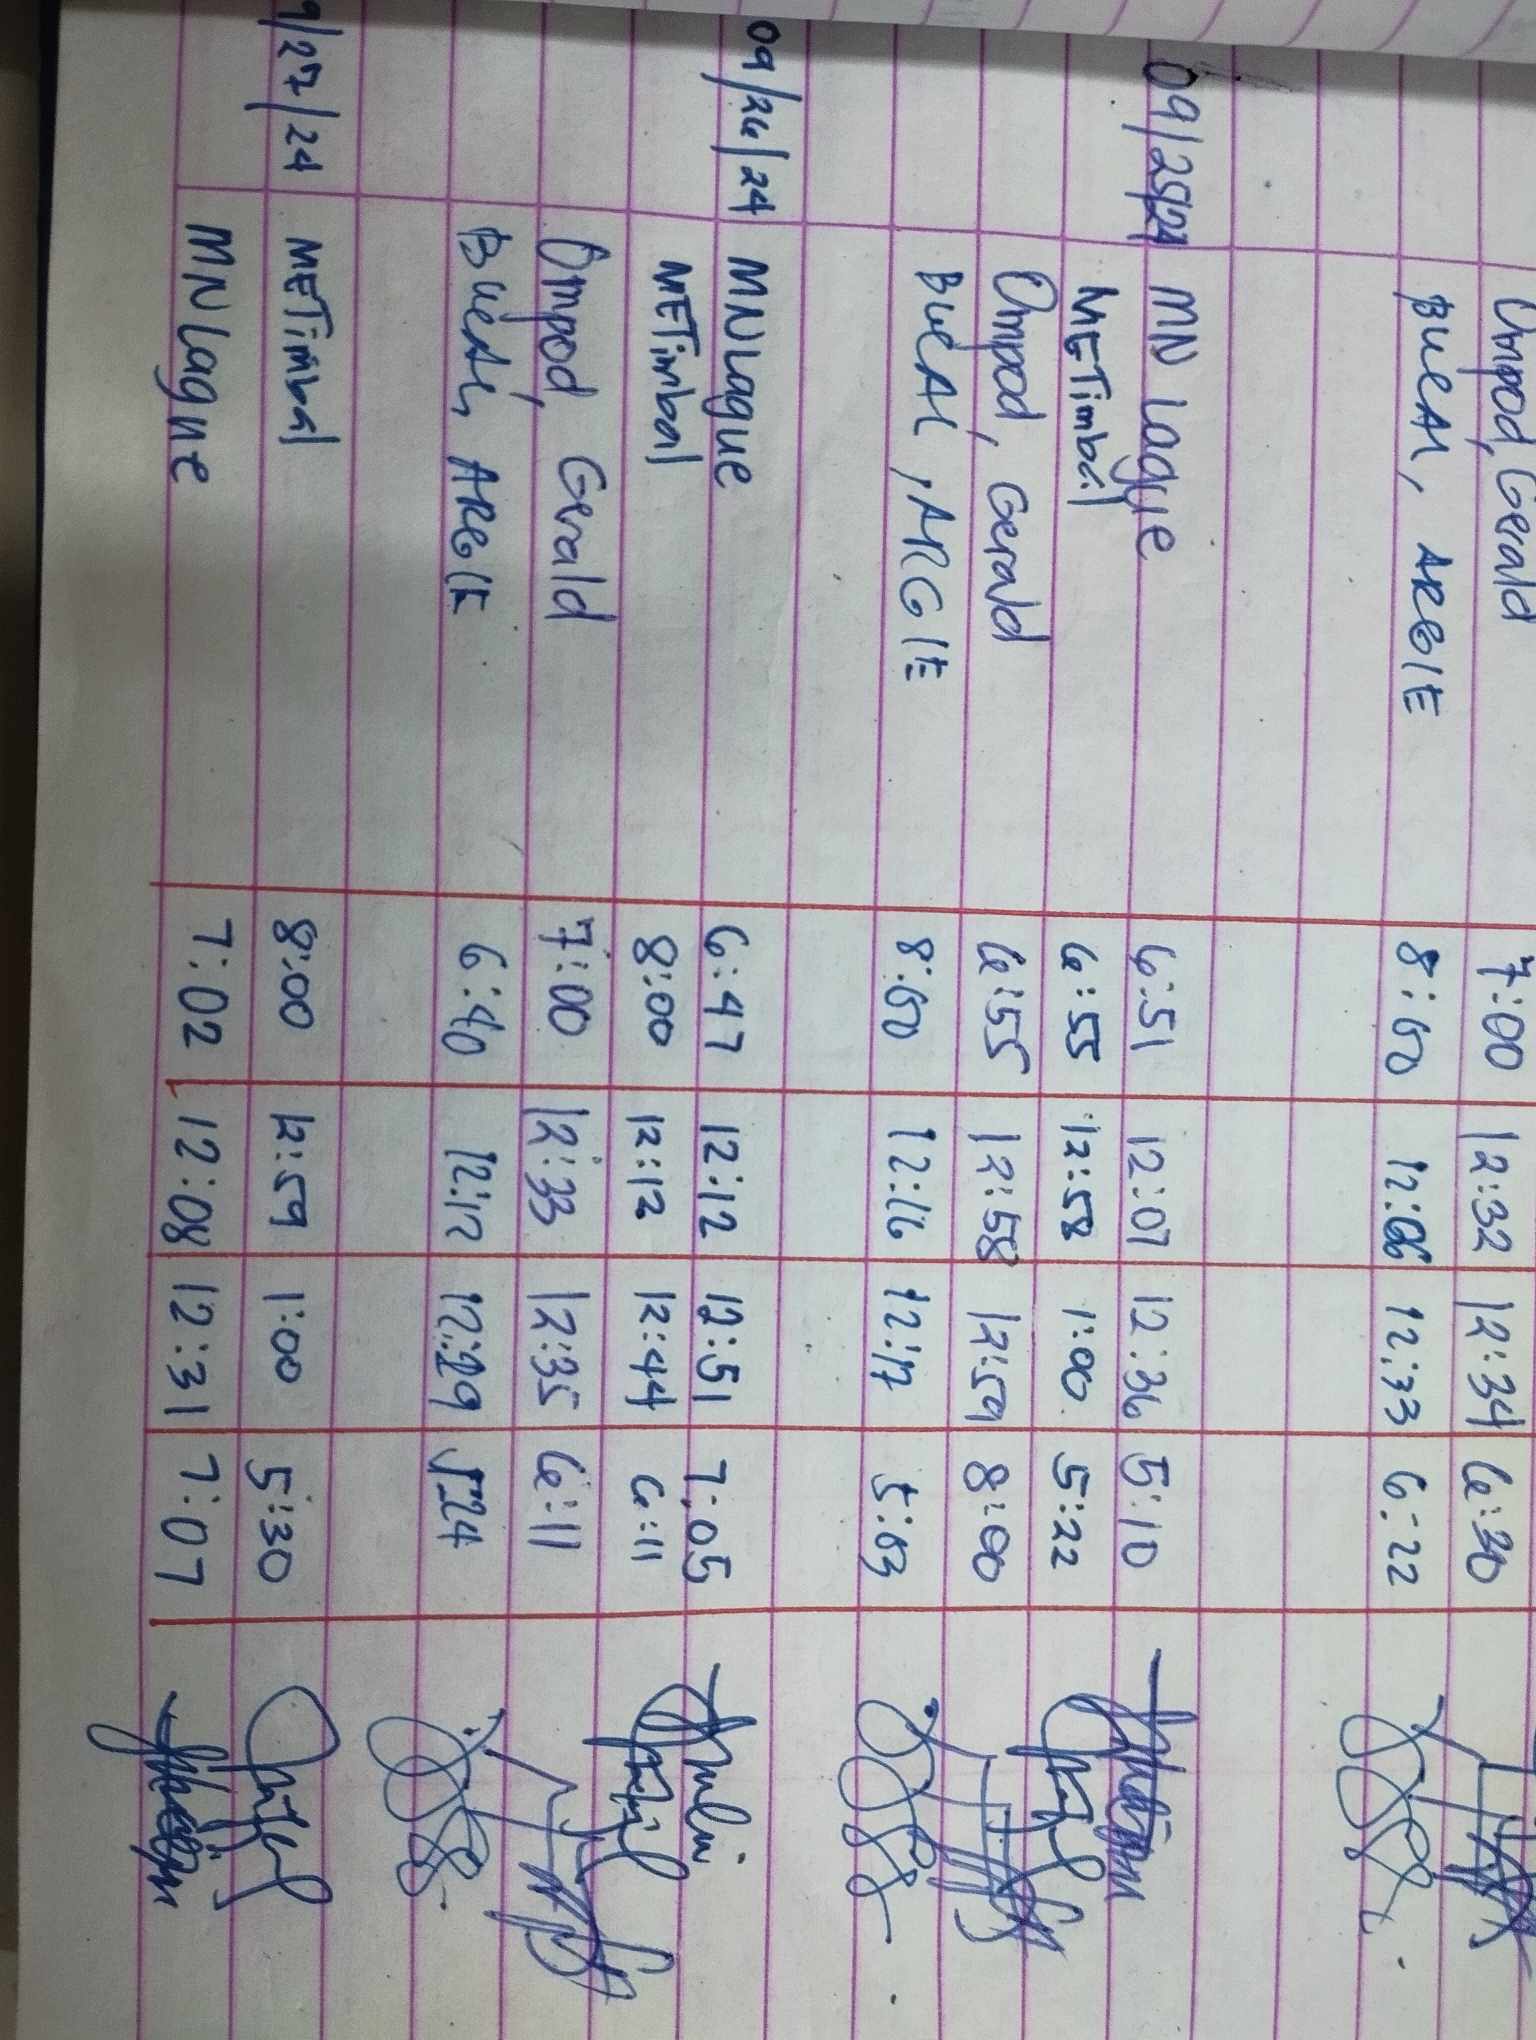 Ompod, Gerald 7:00 12:32 12:34 6:30
BUEAL, ARGIE 8:00 12:06 12:33 6:22
09/25/24 MN Lague 6:51 12:07 12:36 5:10
METimbal 6:55 12:58 1:00 5:22
Ompod, Gerald 6:55 12:58 12:59 8:00
BUEAL, ARGIE 8:00 12:16 12:17 5:03
09/26/24 MNLague 6:47 12:12 12:51 7:05
METimbal 8:00 12:12 12:44 6:11
Ompod, Gerald 7:00 12:33 12:35 6:11
BUEAL, ARGIE 6:40 12:12 12:29 5:24
9/27/24 METimbal 8:00 12:59 1:00 5:30
MNLague 7:02 12:08 12:31 7:07